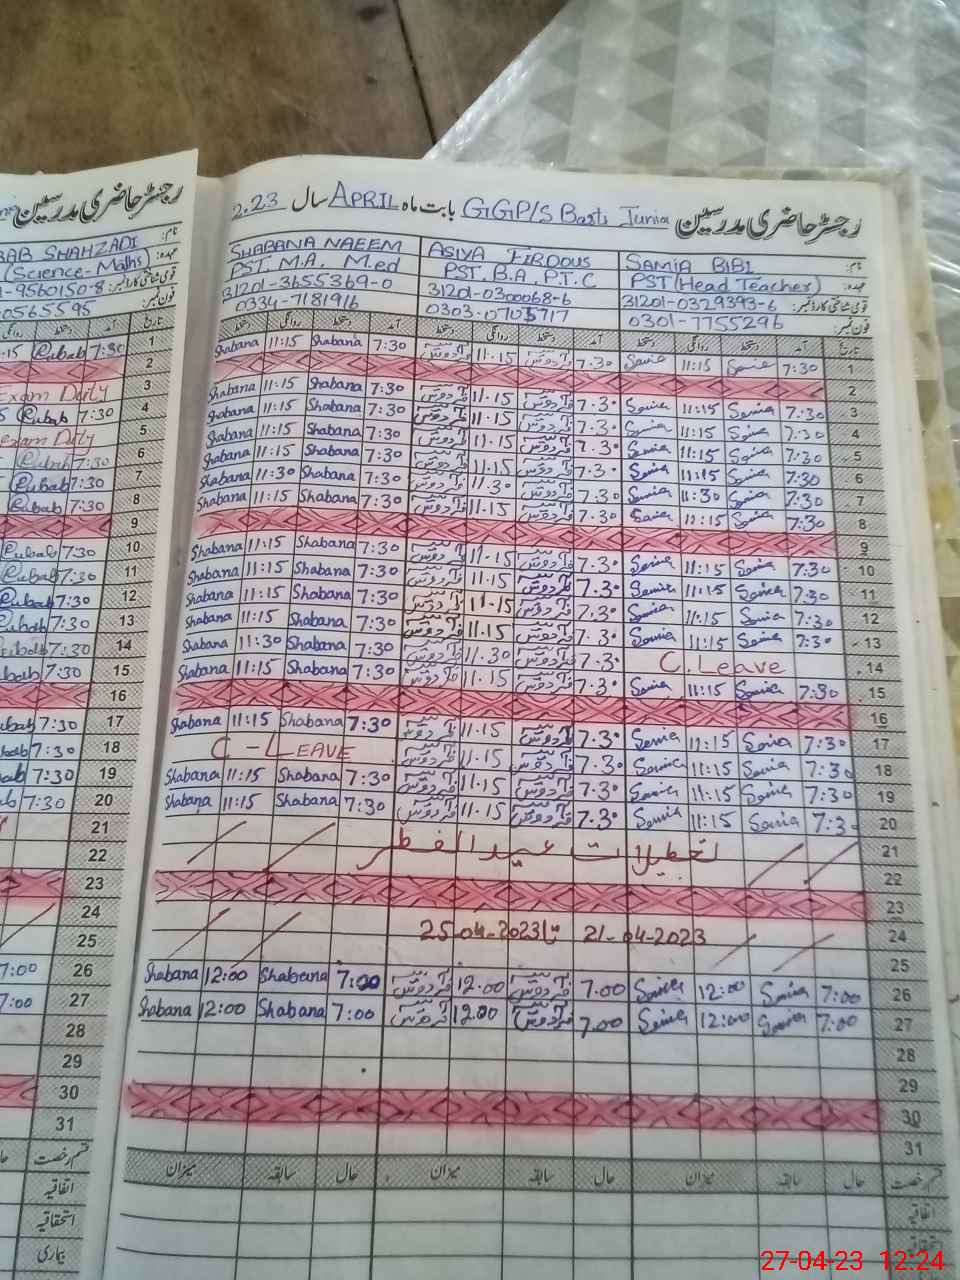 رجسٹر حاضری مدرسین GGP/S Basti Junia بابت ماہ APRIL سال 2.23
نام: SAMIA BIBI ASIYA FIRDOUS SHABANA NAEEM
عہدہ: PST (Head Teacher) PST, B.A, P.T.C PST, M.A, M.ed
قومی شناختی کارڈ نمبر: 31201-0329393-6 31201-0300068-6 31201-3655369-0
فون نمبر: 0301-7755296 0303-0705717 0334-7181916
تاریخ آمد دستخط روانگی دستخط آمد دستخط روانگی دستخط آمد دستخط روانگی دستخط
1 7:30 Samia 11:15 Samia 7.30 فردوس 11.15 فردوس 7:30 Shabana 11:15 Shabana
2
3 7:30 Samia 11:15 Samia 7.30 فردوس 11.15 فردوس 7:30 Shabana 11:15 Shabana
4 7:30 Samia 11:15 Samia 7.30 فردوس 11.15 فردوس 7:30 Shabana 11:15 Shabana
5 7:30 Samia 11:15 Samia 7.30 فردوس 11.15 فردوس 7:30 Shabana 11:15 Shabana
6 7:30 Samia 11:15 Samia 7.30 فردوس 11.15 فردوس 7:30 Shabana 11:15 Shabana
7 7:30 Samia 11:30 Samia 7.30 فردوس 11.30 فردوس 7:30 Shabana 11:30 Shabana
8 7:30 Samia 11:15 Samia 7.30 فردوس 11.15 فردوس 7:30 Shabana 11:15 Shabana
9
10 7:30 Samia 11:15 Samia 7.30 فردوس 11.15 فردوس 7:30 Shabana 11:15 Shabana
11 7:30 Samia 11:15 Samia 7.30 فردوس 11.15 فردوس 7:30 Shabana 11:15 Shabana
12 7:30 Samia 11:15 Samia 7.30 فردوس 11.15 فردوس 7:30 Shabana 11:15 Shabana
13 7:30 Samia 11:15 Samia 7.30 فردوس 11.15 فردوس 7:30 Shabana 11:15 Shabana
14 C.Leave 7.30 فردوس 11.30 فردوس 7:30 Shabana 11:30 Shabana
15 7:30 Samia 11:15 Samia 7.30 فردوس 11.15 فردوس 7:30 Shabana 11:15 Shabana
16
17 7:30 Samia 11:15 Samia 7.30 فردوس 11.15 فردوس 7:30 Shabana 11:15 Shabana
18 7:30 Samia 11:15 Samia 7.30 فردوس 11.15 فردوس C-LEAVE
19 7:30 Samia 11:15 Samia 7.30 فردوس 11.15 فردوس 7:30 Shabana 11:15 Shabana
20 7:30 Samia 11:15 Samia 7.30 فردوس 11.15 فردوس 7:30 Shabana 11:15 Shabana
21 تعطیلات عیدالفطر
22
23
24 21-04-2023 تا 25-04-2023
25
26 7:00 Samia 12:00 Samia 7.00 فردوس 12.00 فردوس 7:00 Shabana 12:00 Shabana
27 7:00 Samia 12:00 Samia 7.00 فردوس 12.00 فردوس 7:00 Shabana 12:00 Shabana
28
29
30
31
قسم رخصت حال سابقہ میزان حال سابقہ میزان حال سابقہ میزان
اتفاقیہ
رجسٹر حاضری مدرسین
نام: SHAHZADI
عہدہ: (Science-Maths)
قومی شناختی کارڈ نمبر: 9560150-8
فون نمبر: 0565595
تاریخ آمد دستخط روانگی
1 7:30 Rubab :15
2
3 Exam Duty
4 7:30 Rubab
5 Exam Duty
6 7:30 Rubab
7 7:30 Rubab
8 7:30 Rubab
9
10 7:30 Rubab
11 7:30 Rubab
12 7:30 Rubab
13 7:30 Rubab
14 7:30
15 7:30
16
17 7:30
18 7:30
19 7:30
20 7:30
21
22
23
24
25
26 7:00
27 7:00
28
29
30
31
قسم رخصت
اتفاقیہ
استحقاقیہ
بیماری
27-04-23 12:24